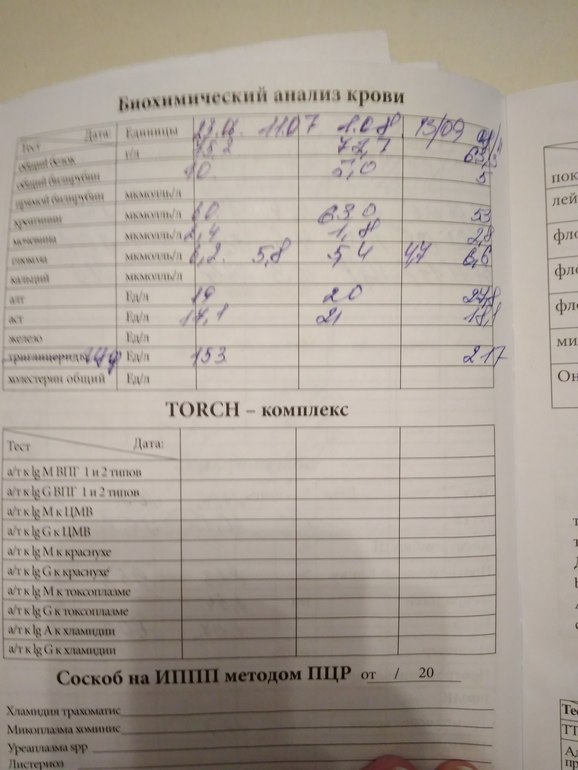 Биохимический анализ крови
Тест Дата: Единицы 11.07 1.08 13/09
общий белок г/л 77,7
общий билирубин 10 5,0 5
прямой билирубин мкмолль/л
креатинин мкмолль/л 60 63,0 53
мочевина мкмолль/л 2,4 1,8 2,8
глюкоза мкмолль/л 5,8 5,4 4,7 6,6
кальций мкмолль/л
алт Ед/л 19 20 24,8
аст Ед/л 17,1 21 18,1
железо Ед/л
триглицериды Ед/л 153 217
холестерин общий Ед/л
TORCH – комплекс
Тест Дата:
а/т к lg M ВПГ 1 и 2 типов
а/т к lg G ВПГ 1 и 2 типов
а/т к lg M к ЦМВ
а/т к lg G к ЦМВ
а/т к lg M к краснухе
а/т к lg G к краснухе
а/т к lg M к токсоплазме
а/т к lg G к токсоплазме
а/т к lg A к хламидии
а/т к lg G к хламидии
Соскоб на ИППП методом ПЦР от / 20
Хламидия трахоматис
Микоплазма хоминис
Уреаплазма spp
Листериоз
пок
лей
фло
фло
фло
ми
Он
Те
ТТ